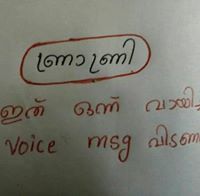 ണ്രാണ്രി
ഇത് ഒന്ന് വായി
voice msg വിടണ